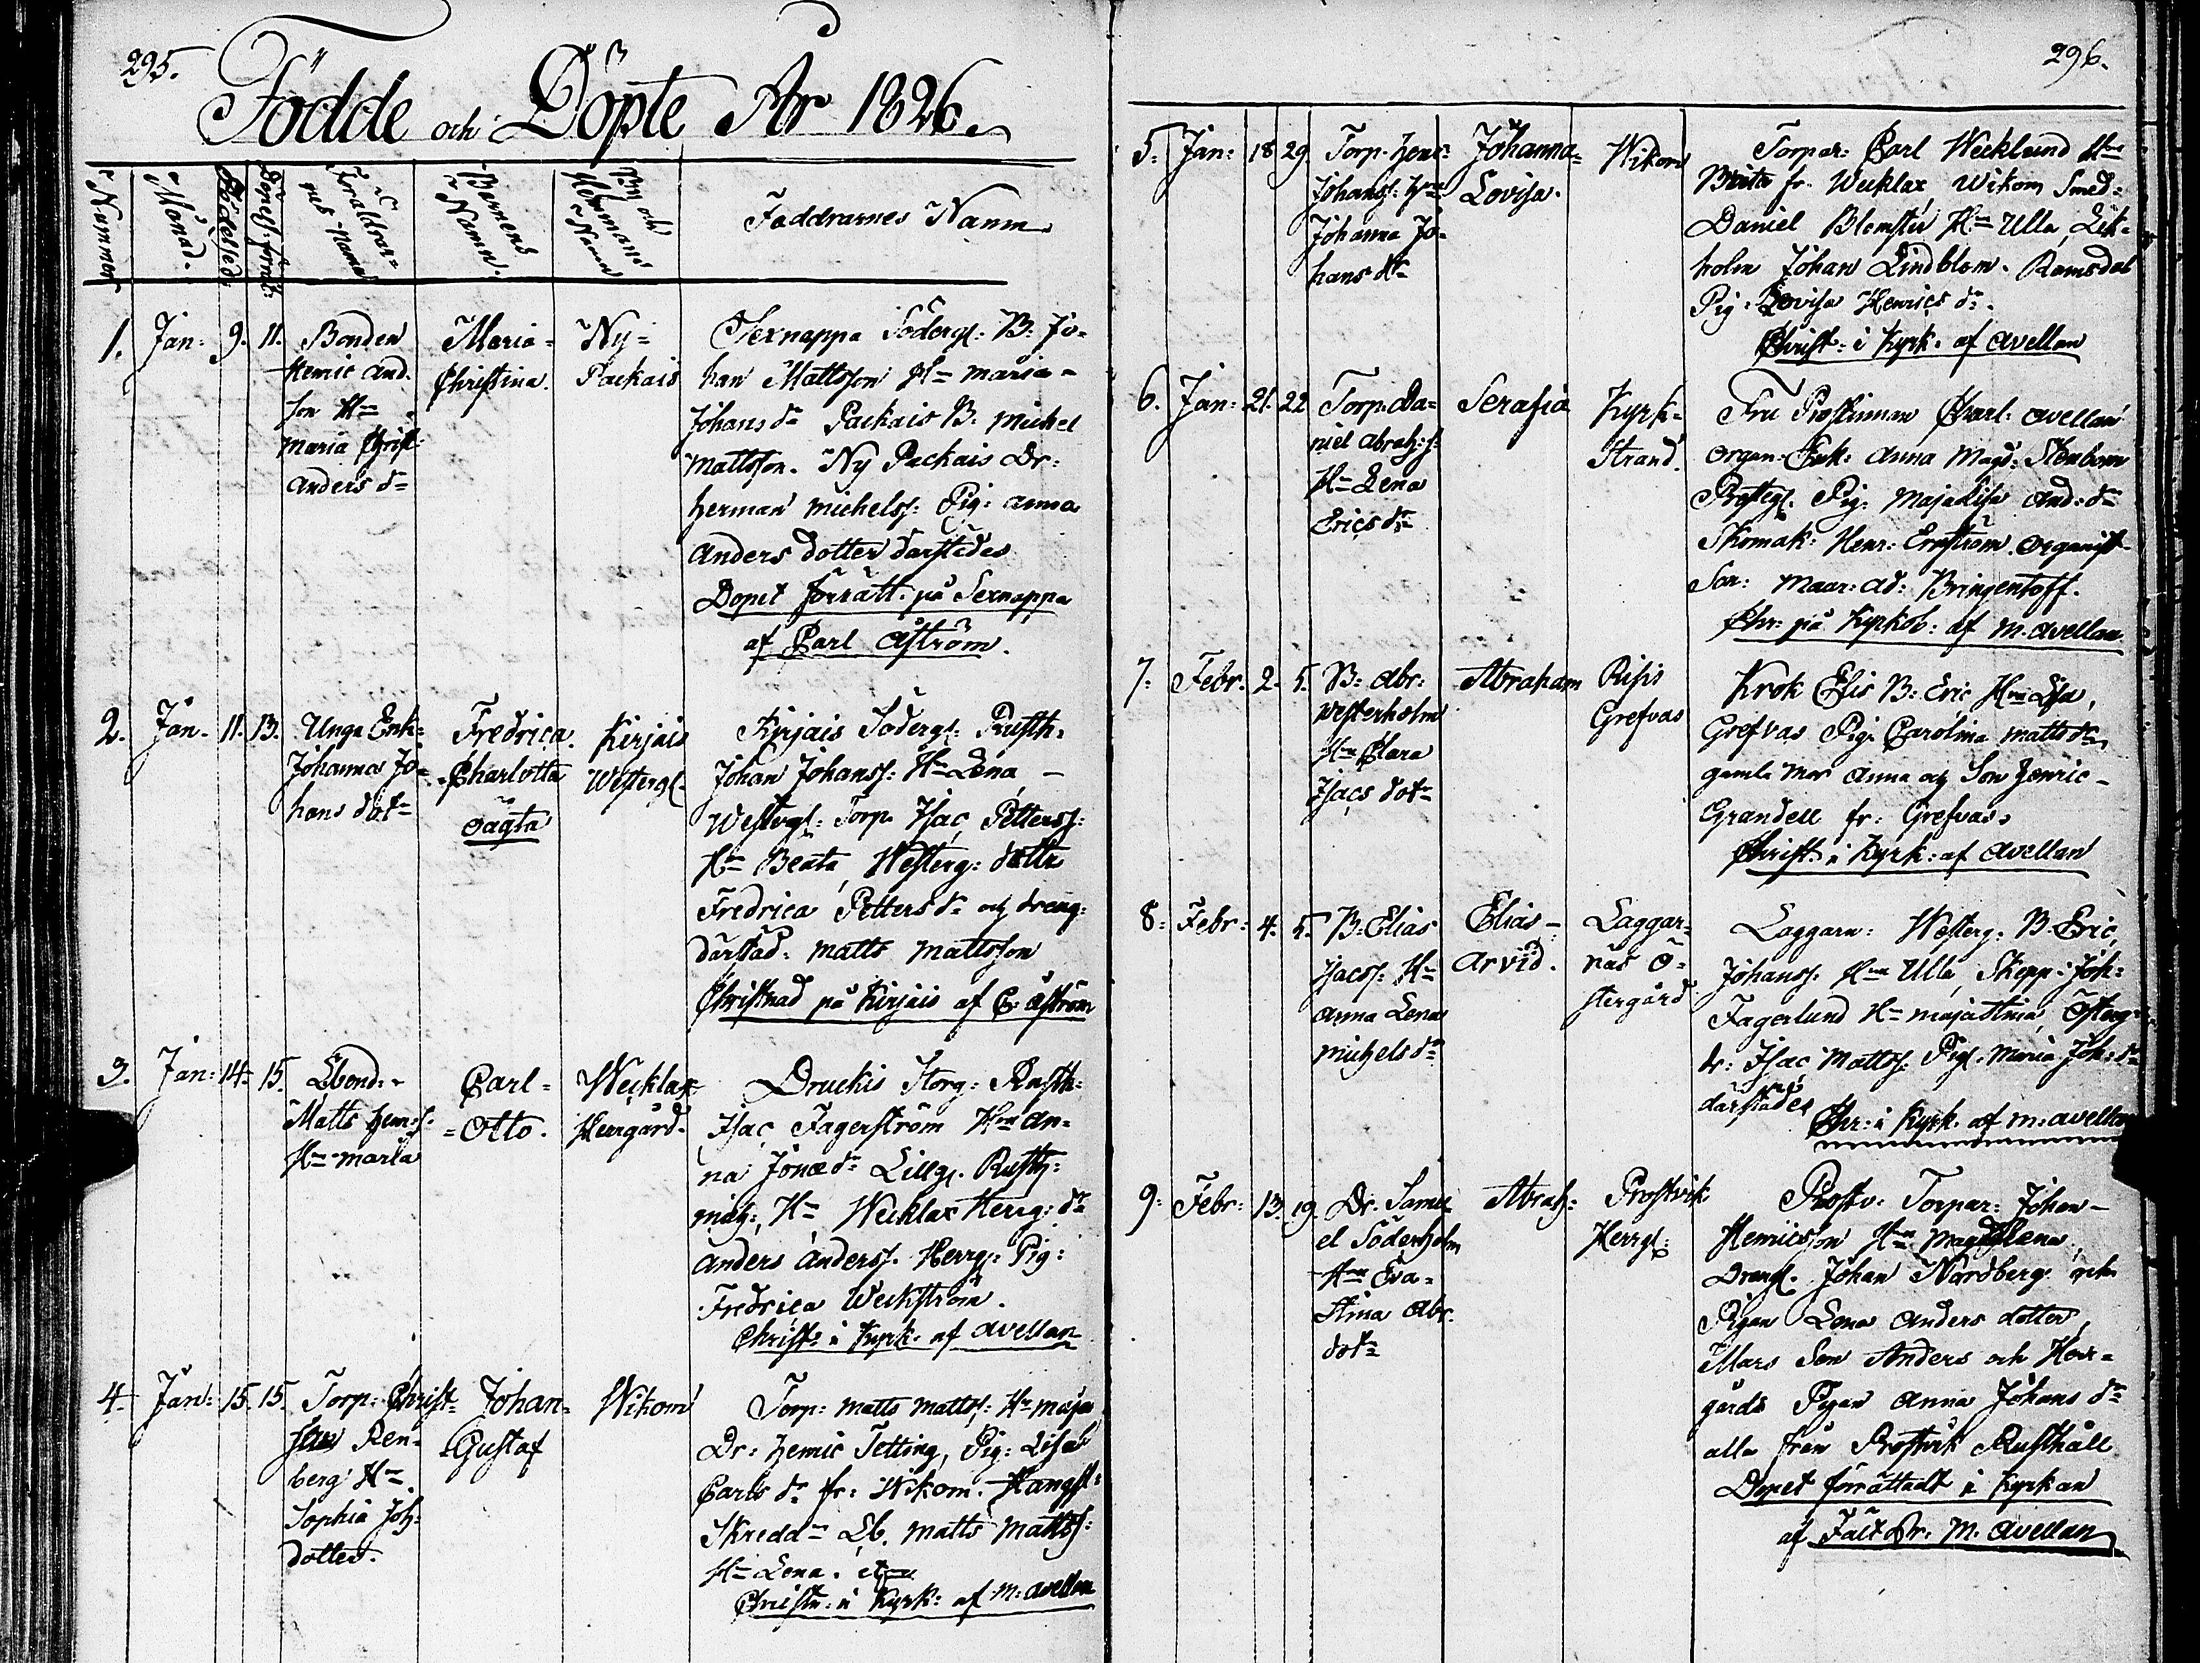 295.
Födde och Döpte År 1826.
Nummer
Månad.
Födelsed
Döpels: förrät:
Föräldrar=
nas Namn
Barnens
Namn.
By och
Hemmans
Namn
Faddrarnes Namn
1. Jan: 9. 11.
Bonden
Henric And.
son H=
Maria Christ
Anders d=
Maria=
Christina.
Ny=
Packais
Sexnappa Södergl: B: Jo=
han Mattsson H= Maria=
Johans d= Packais B: Michel
Mattsson. Ny Packais Dr:
Herman Michelss: Pig: Anna
Anders dotter därstedes
Dopet förrätt: på Sexnappa
af Carl Åström.
2. Jan. 11. 13.
Unga Enk:
Johanna Jo=
hans dot=
Fredrica.
Charlotta
oägta
Kirjais
Westergl.
Kirjais Södergl: Rusth:
Johan Johanss: H= Lena =
Westergl: Torp. Isac Petterss:
H= Beata, Westerg: dottr
Fredrica Petters d= och dreng:
därstäd: Matts Mattsson
Christnad på Kirjais af C: Åström
3. Jan: 14. 15.
Lbond:
Matts Henrs:
H= Maria
Carl=
=Otto.
Wecklax
Herrgård.
Druckis Storg: Rusth:
Isac Fagerström H= An=
na Jonæ d= Lillg: Rusth:
Mich: H= Wecklax Herrg: d=
Anders Anderss. Herrg: Pig:
Fredrica Weckström.
Christ: i Kyrk. af Avellan
4. Jan: 15. 15.
Torp: Christ=
Ren=
berg H=
Sophia Joh:
dotter.
Johan=
=Gustaf
Wikom
Torp: Matts Matts: H= Maja
Dr: Henric Tetting, Pig: Lisa
Carls d= fr: Wikom.
Skredd= Lb. Matts Matts:
H= Lena.
Christn: i Kyrk: af M: Avellan
296.
5. Jan: 18 29.
Torp. Henr=
Johans: H=
Johanna Jo=
hans d=
Johanna=
Lovisa.
Wikom
Torpar: Carl Wecklund H=
Brita fr. Wecklax, Wikom Smed:
Daniel Blomster H= Ulla, Lek=
holm Johan Lindblom. Ramsdal
Pig: Lovisa Henrics d=.
Christ: i Kyrk. af Avellan
6. Jan: 21. 22
Torp. Da=
niel Abrah:s:
H= Lena
Erics d=
Serafia
Kyrk=
Strand.
Fru Prostinnan Charl: Avellan
Organ: Enk: Anna Magd: Stenbom
Prosteg: Pig: Majalisa And: d=
Skomak: Henr: Ernström. Organist=
Son: Maar: Ad: Bringentoff.
Chr: på Kyrkob: af M. Avellan
7. Febr. 2. 5.
B: Abr:
Westerholm
H= Clara
Isacs dot=
Abraham
Risis
Grefvas
Krok Elis B: Eric H= Lisa,
Grefvas Pig: Carolina Matts d=
gamla Mor Anna och Son Henric=
Grandell fr: Grefvas.
Christ: i Kyrk: af Avellan
8. Febr: 4. 5.
B: Elias
Isacss: H=
Anna Lena
Michels d=
Elias=
Arvid.
Laggar=
näs Ö=
stergård
Laggarn: Westerg: B: Eric,
Johanss. H= Ulla, Skepp: Joh:
Fagerlund H= Majastina, Österg:
dr: Isac Matts: Pig: Maria Joh: d=
därstädes
Chr: i Kyrk. af M: Avellan
9. Febr: 13. 19.
Dr. Samu=
el Söderholm
H= Eva=
Stina Abr.
dot=
Abrah:
Prostvik
Herrg:
Prostv: Torpar: Johan=
Henricsson H= Magdalena
Dreng: Johan Nordberg och
Pigan Lena Anders dotter,
Mars Son Anders och Herr=
gårds Pigan Anna Johans d=
alla från Prostvik Rusthåll
Dopet förrättadt i Kyrkan
af Fält Pr. M. Avellan